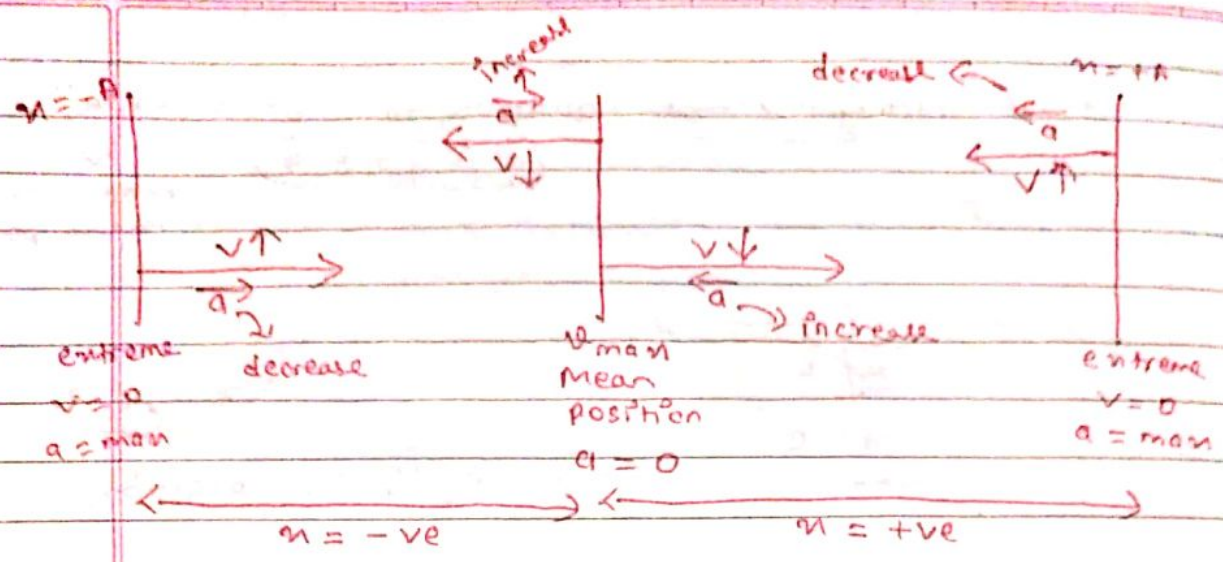 increase ↑
decrease
x = +A
x = -A
a
a
v↓
v↑
v↑
v↓
a
a
increase
decrease
extreme
v = 0
a = max
vmax
Mean
position
a = 0
extreme
v = 0
a = max
x = -ve
x = +ve